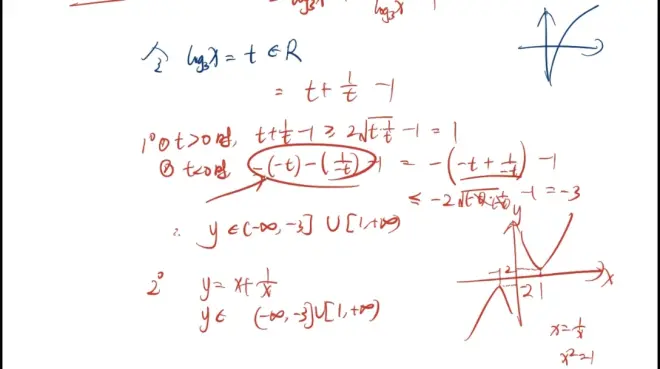 令 log₃x = t ∈ R
= t + 1/t - 1
1° ① t>0时, t + 1/t - 1 ≥ 2√(t·1/t) - 1 = 1
② t<0时 -(-t) - (1/-t) - 1 = -(-t + 1/-t) - 1
≤ -2√ -1 = -3
∴ y ∈ (-∞, -3] ∪ [1, +∞)
2° y = x + 1/x
y ∈ (-∞, -3] ∪ [1, +∞)
y
-1 2
2 1
x
x = 1/x
x² = 1